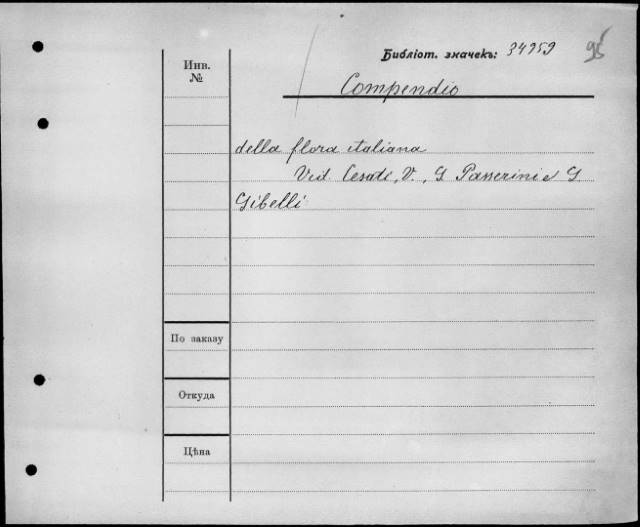 Библіот. значекъ: 34959
Инв.
№
Compendio
della flora italiana
Ved Cesati, V., G Passerini e G
Gibelli
По заказу
Откуда
Цѣна